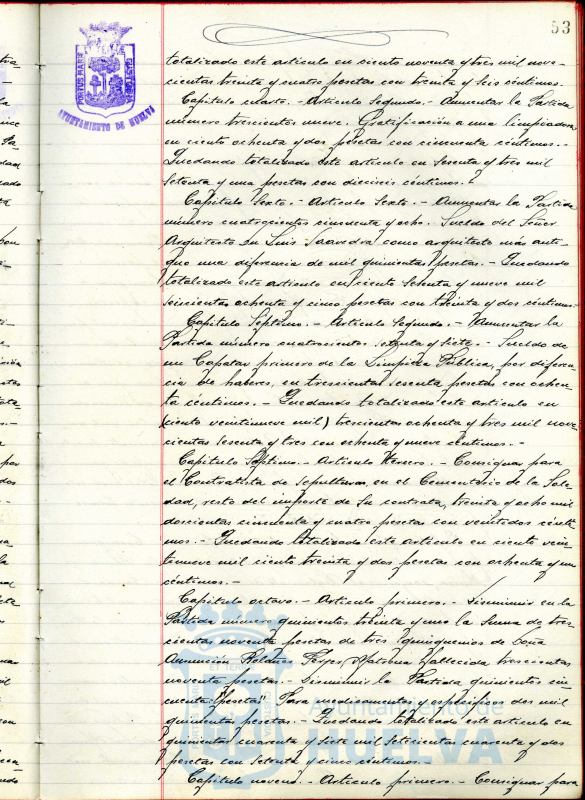 53
PORTUS MARIS ET TERRAE CUSTODIA
AYUNTAMIENTO DE HUELVA
totalizado este artículo en ciento noventa y tres mil nove-
cientas treinta y cuatro pesetas con treinta y seis céntimos.
Capítulo cuarto.- Artículo Segundo.- Aumentar la Partida
número trescientos nueve. Gratificación a una limpiadora
en ciento ochenta y dos pesetas con cincuenta céntimos.-
Quedando totalizado este artículo en sesenta y tres mil
setenta y una pesetas con dieciseis céntimos.
Capítulo Sexto.- Artículo Sexto.- Aumentar la Partida
número cuatrocientos cincuenta y ocho. Sueldo del Señor
Arquitecto Dn Luis Saavedra como arquitecto más anti-
guo una diferencia de mil quinientas pesetas.- Quedando
totalizado este artículo en ciento setenta y nueve mil
seiscientas ochenta y cinco pesetas con treinta y dos céntimos.
Capítulo Séptimo.- Artículo Segundo.- Aumentar la
Partida número cuatrocientos setenta y siete.- Sueldo de
un Capataz primero de la Limpieza Pública, por diferen-
cia de haberes, en trescientas sesenta pesetas con ochen-
ta céntimos.- Quedando totalizado este artículo en
(ciento veintinueve mil) trescientas ochenta y tres mil nove-
cientas sesenta y tres con ochenta y nueve céntimos.-
Capítulo Séptimo.- Artículo tercero.- Consignar para
el Contratista de Sepulturas, en el Cementerio de la Sole-
dad, resto del importe de su contrata, treinta y ocho mil
doscientas cincuenta y cuatro pesetas con veintidos cénti-
mos.- Quedando totalizado este artículo en ciento vein-
tinueve mil ciento treinta y dos pesetas con ochenta y un
céntimos.-
Capítulo octavo.- Artículo primero.- Disminuir en la
Partida número quinientos treinta y uno la suma de tres-
cientas noventa pesetas de tres quinquenios de Doña
Asunción Roldán Matrona fallecida trescientas
noventa pesetas.- Disminuir la Partida quinientos cin-
cuenta pesetas Para medicamentos y específicos dos mil
quinientas pesetas.- Quedando totalizado este artículo en
quinientas cuarenta y siete mil setecientas cuarenta y dos
pesetas con setenta y cinco céntimos.-
Capítulo noveno.- Artículo primero.- Consignar para
Ayuntamiento de
HUELVA